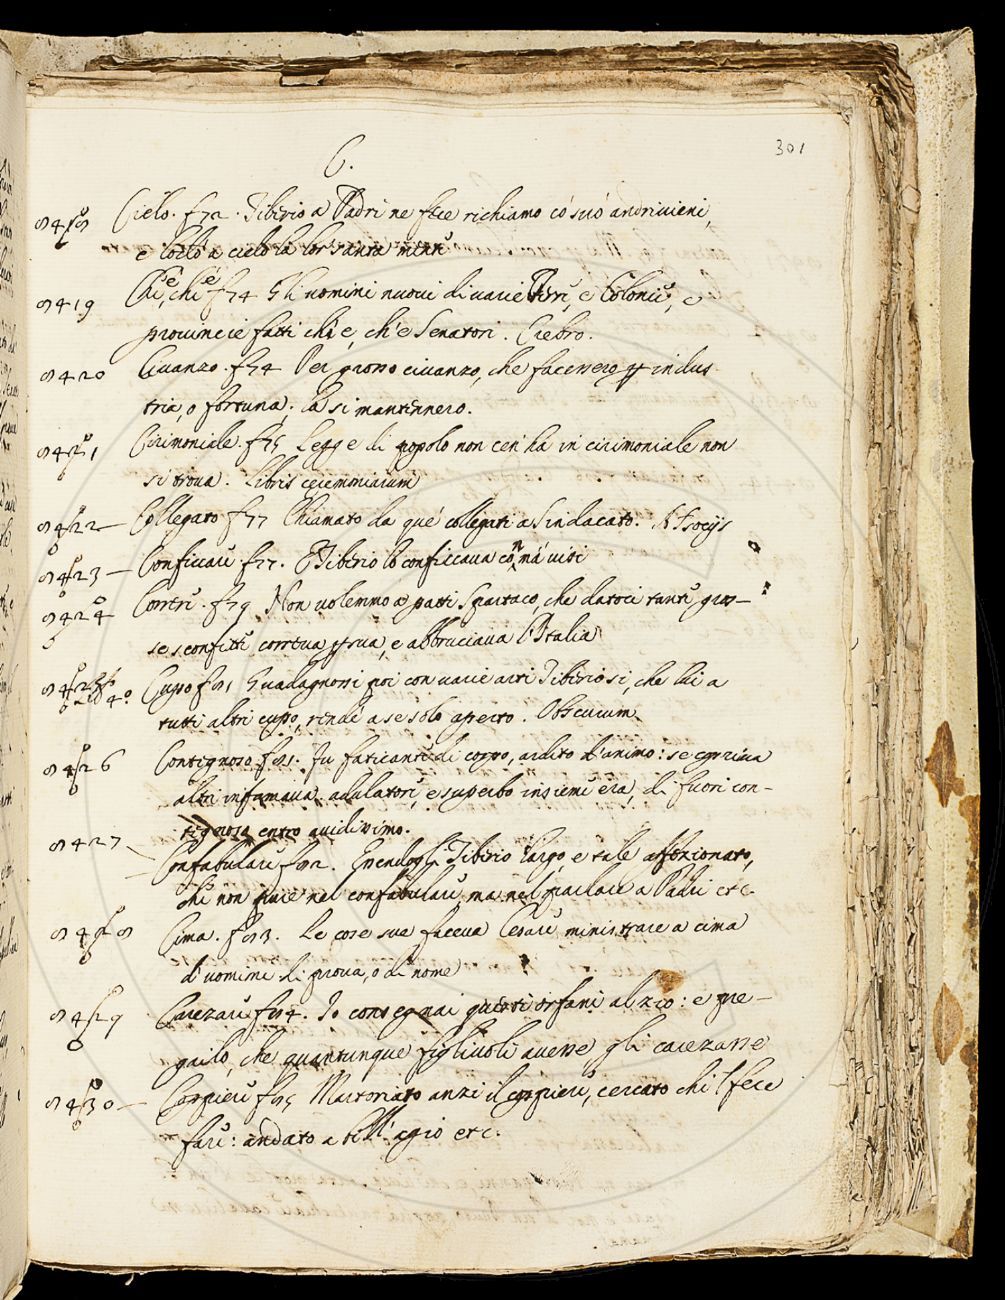 301
C.
9418 Cielo. f72. Tiberio a Padri ne fece richiamo có suó andrivieni,
e a cielo la lor santa
9419 Chi è, chi è f74 Gli uomini nuovi di varie Terre, e Colonie, e
provincie fatti chi è, ch'è Senatori. Crebro.
9420 Civanzo. f74 Per grosso civanzo, che facessero per indus
tria, o fortuna; là si mantennero.
9421 Cirimoniale. f75 Legge di popolo non cen'ha in cirimoniale non
si trova. Libris cęremoniarum
9422 Collegato f77 Chiamato da qué collegati a Sindacato. A Socijs
9423 Conficcare f77. Tiberio lo conficcava có má visi
9424 Correre. f79 Non volemmo a patti Spartaco, che datoci tante gros-
se sconfitte correva per sua, e abbruciava l'Italia
Cupo f81 Guadagnossi poi con varie arti Tiberio sì, che lui a
tutti altri cupo, rendé a se solo aperto. Obscurum.
9426 Contignoso f81. Fu faticante di corpo, ardito d'animo: se copriva
altri infamava, adulatore, e superbo insieme era, di fuori con-
tignoso entro avidissimo.
9427 Confabulare f82. Tiberio largo e tale affezionato,
che non pare nel confabulare ma nel parlare a Padri etc.
9428 Cima. f83. Le cose sue faceva Cesare ministrare a cima
d'uomini di prova, o di nome
9429 Carezare f84. Io consegnai questi orfani al zio: e pre-
gailo, che quantunque figlivoli avesse gli carezasse
9430 Coppiere f85 Martoriato anzi il coppiere, cercato chi 'l fece
fare: andato a bell'agio etc.